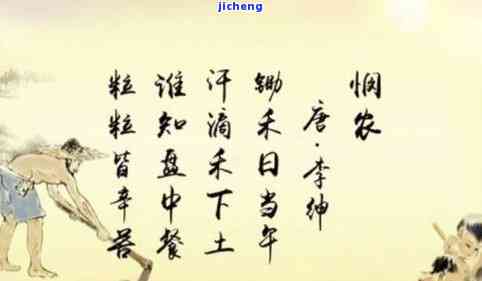 jicheng
悯农
唐·李绅
锄禾日当午
汗滴禾下土
谁知盘中餐
粒粒皆辛苦